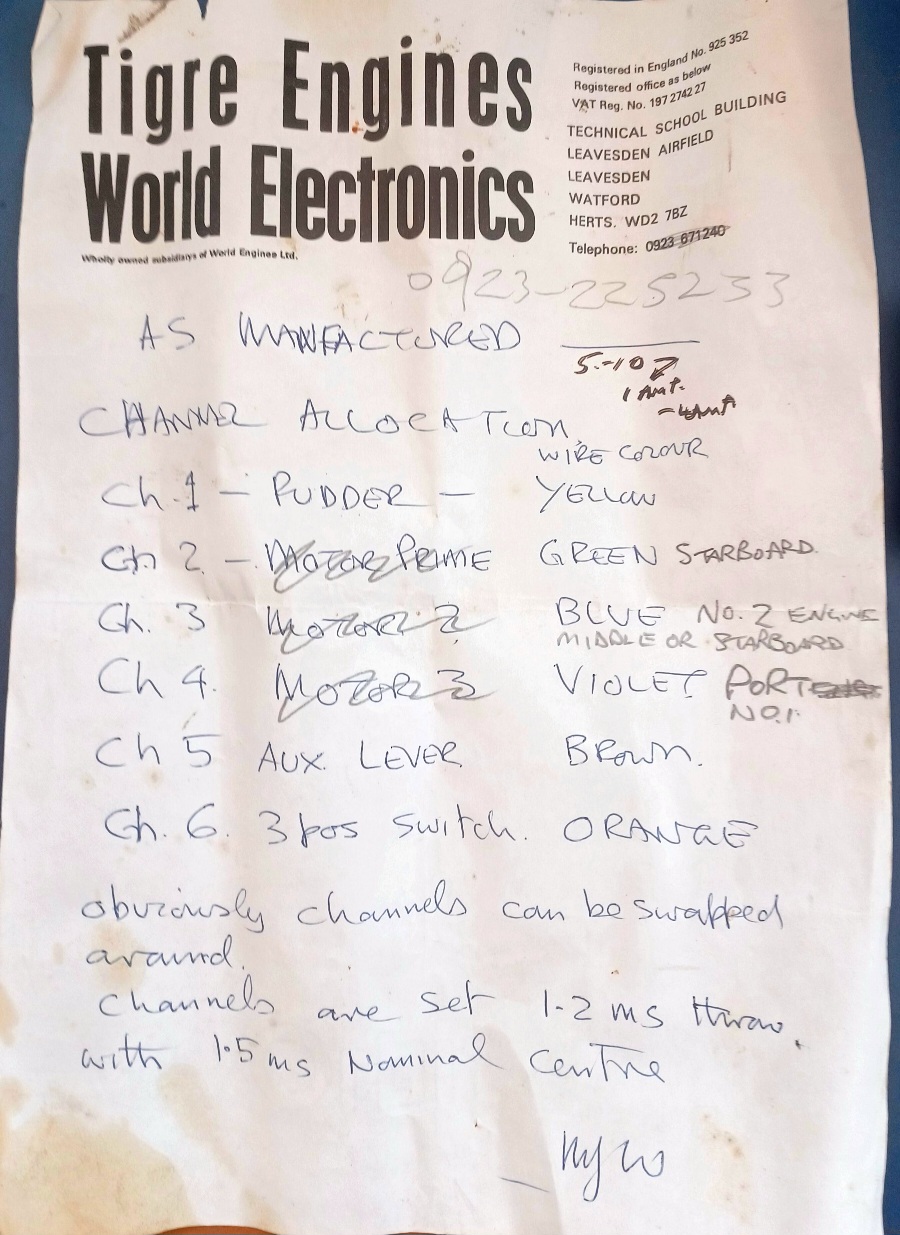 Tigre Engines
World Electronics
Wholly owned subsidiarys of World Engines Ltd.
Registered in England No. 925 352
Registered office as below
VAT Reg. No. 197 2742 27
TECHNICAL SCHOOL BUILDING
LEAVESDEN AIRFIELD
LEAVESDEN
WATFORD
HERTS. WD2 7BZ
Telephone: 0923 671240
0923-225233
AS MANFACTURED
5.-10
1 AMP.
-4AMP
CHANNEL ALLOCATION
WIRE COLOUR
Ch.1 - RUDDER - YELLOW
Ch 2 - MOTOR PRIME GREEN STARBOARD.
Ch. 3 MOTOR 2 BLUE NO. 2 ENGINE
MIDDLE OR STARBOARD
Ch 4. MOTOR 3 VIOLET PORT
NO.1.
Ch 5 AUX. LEVER BROWN.
Ch. 6. 3 pos switch. ORANGE
obviously channels can be swapped
around.
Channels are set 1-2 ms throw
with 1.5 ms Nominal Centre